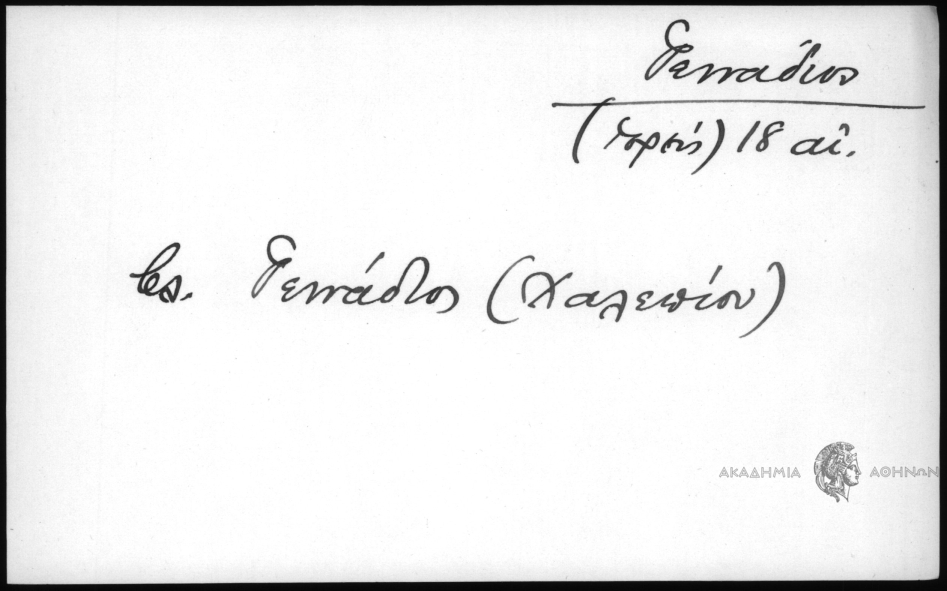 Γεννάδιος
(ἱερεύς) 18 αἰ.
βλ. Γεννάδιος (Χαλεπίου)
ΑΚΑΔΗΜΙΑ ΑΘΗΝΩΝ